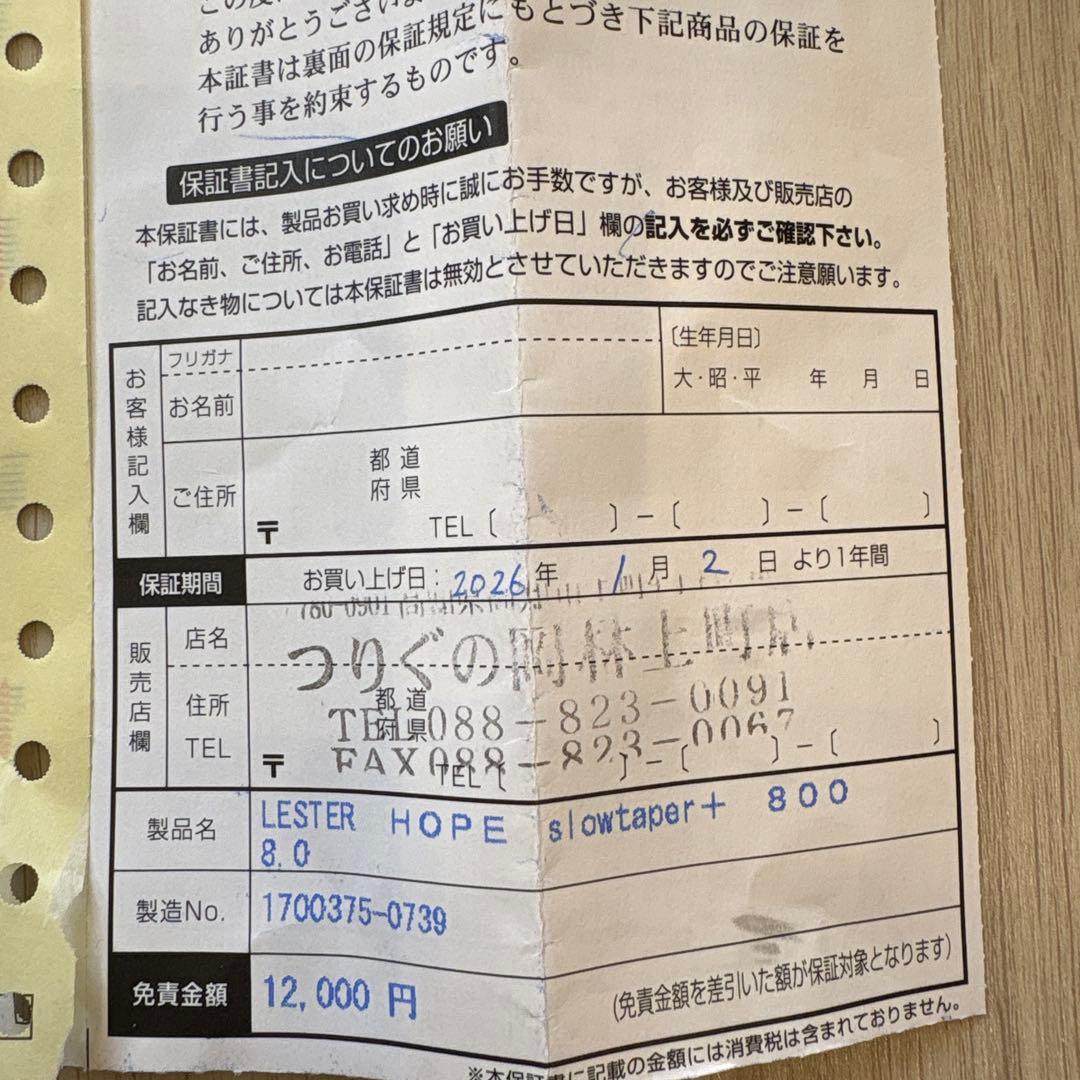 ありがとうございま
本証書は裏面の保証規定にもとづき下記商品の保証を
行う事を約束するものです。
保証書記入についてのお願い
本保証書には、製品お買い求め時に誠にお手数ですが、お客様及び販売店の
「お名前、ご住所、お電話」と「お買い上げ日」欄の記入を必ずご確認下さい。
記入なき物については本保証書は無効とさせていただきますのでご注意願います。
お客様記入欄
フリガナ
お名前
〔生年月日〕
大・昭・平 年 月 日
ご住所
都道
府県
〒 TEL〔 〕－〔 〕－〔 〕
保証期間 お買い上げ日: 2026年 1月 2日 より1年間
販売店欄
店名
780-0901
つりぐの岡林上町店
住所
都道
府県
TEL 088-823-0091
FAX 088-823-0067
TEL
〒 TEL〔 〕－〔 〕－〔 〕
製品名 LESTER HOPE slowtaper+ 800
8.0
製造No. 1700375-0739
免責金額 12,000 円
(免責金額を差引いた額が保証対象となります)
※本保証書に記載の金額には消費税は含まれておりません。